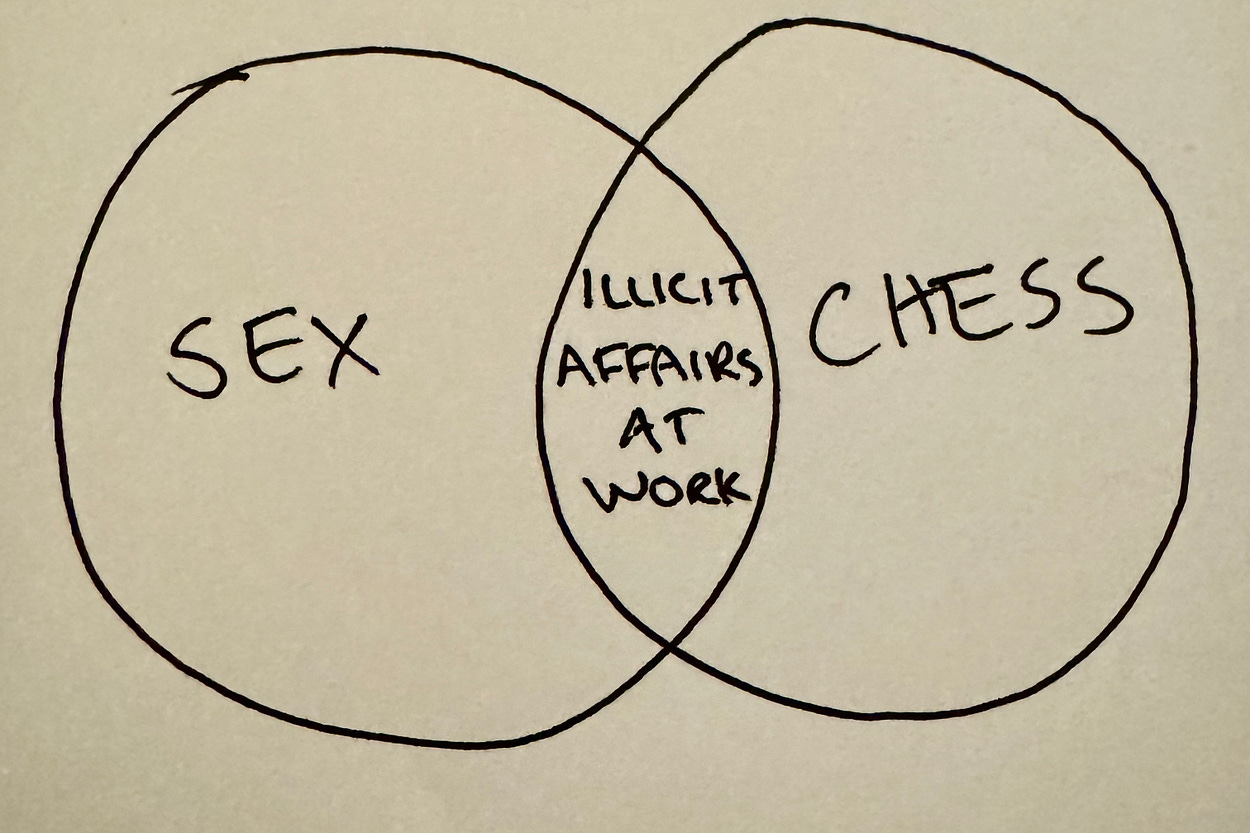 SEX
ILLICIT
AFFAIRS
AT
WORK
CHESS